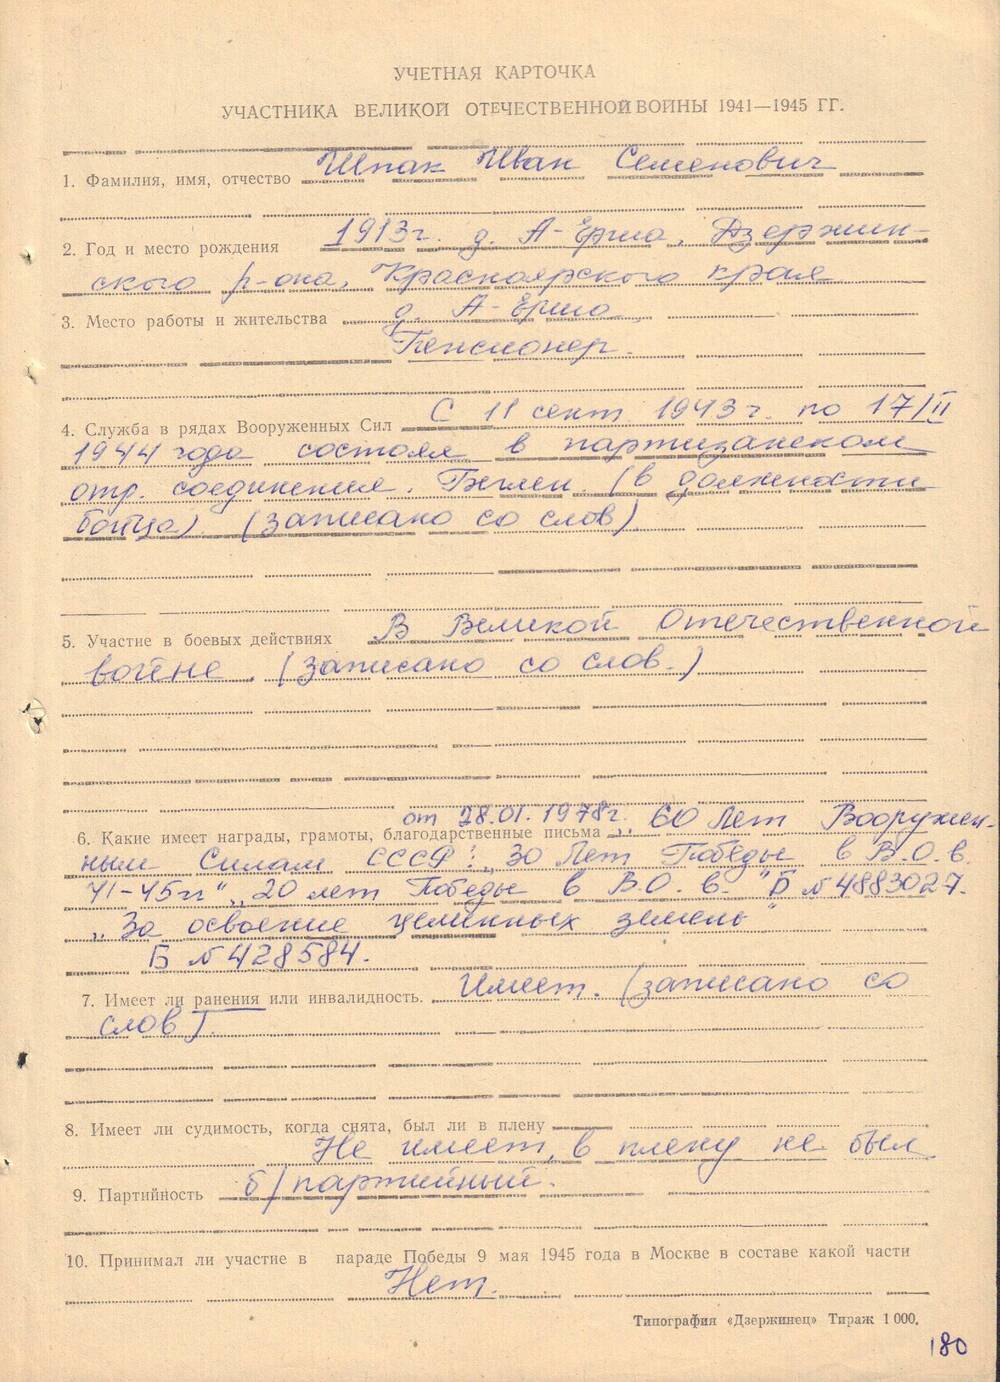 УЧЕТНАЯ КАРТОЧКА
УЧАСТНИКА ВЕЛИКОЙ ОТЕЧЕСТВЕННОЙ ВОЙНЫ 1941—1945 ГГ.
1. Фамилия, имя, отчество Шпак Иван Семенович
2. Год и место рождения 1913г. д. А-Ерша, Дзержин-
ского р-она, Красноярского края
3. Место работы и жительства д. А-Ерша
Пенсионер.
4. Служба в рядах Вооруженных Сил С 11 сент 1943г. по 17/II
1944 года состоял в партизанском
отр. соединения. (в должности
бойца) (записано со слов)
5. Участие в боевых действиях В Великой Отечественной
войне (записано со слов.)
от 28.01.1978г.
6. Какие имеет награды, грамоты, благодарственные письма „60 Лет Вооружен-
ным Силам СССР", „30 Лет Победы в В.О.в.
41-45гг" „20 лет Победы в В.О.в." Б №4883027.
„За освоение целинных земель"
Б №428584.
7. Имеет ли ранения или инвалидность. Имеет. (записано со
слов).
8. Имеет ли судимость, когда снята, был ли в плену
Не имеет, в плену не был.
9. Партийность б/партийный.
10. Принимал ли участие в параде Победы 9 мая 1945 года в Москве в составе какой части
Нет.
Типография «Дзержинец» Тираж 1 000.
180